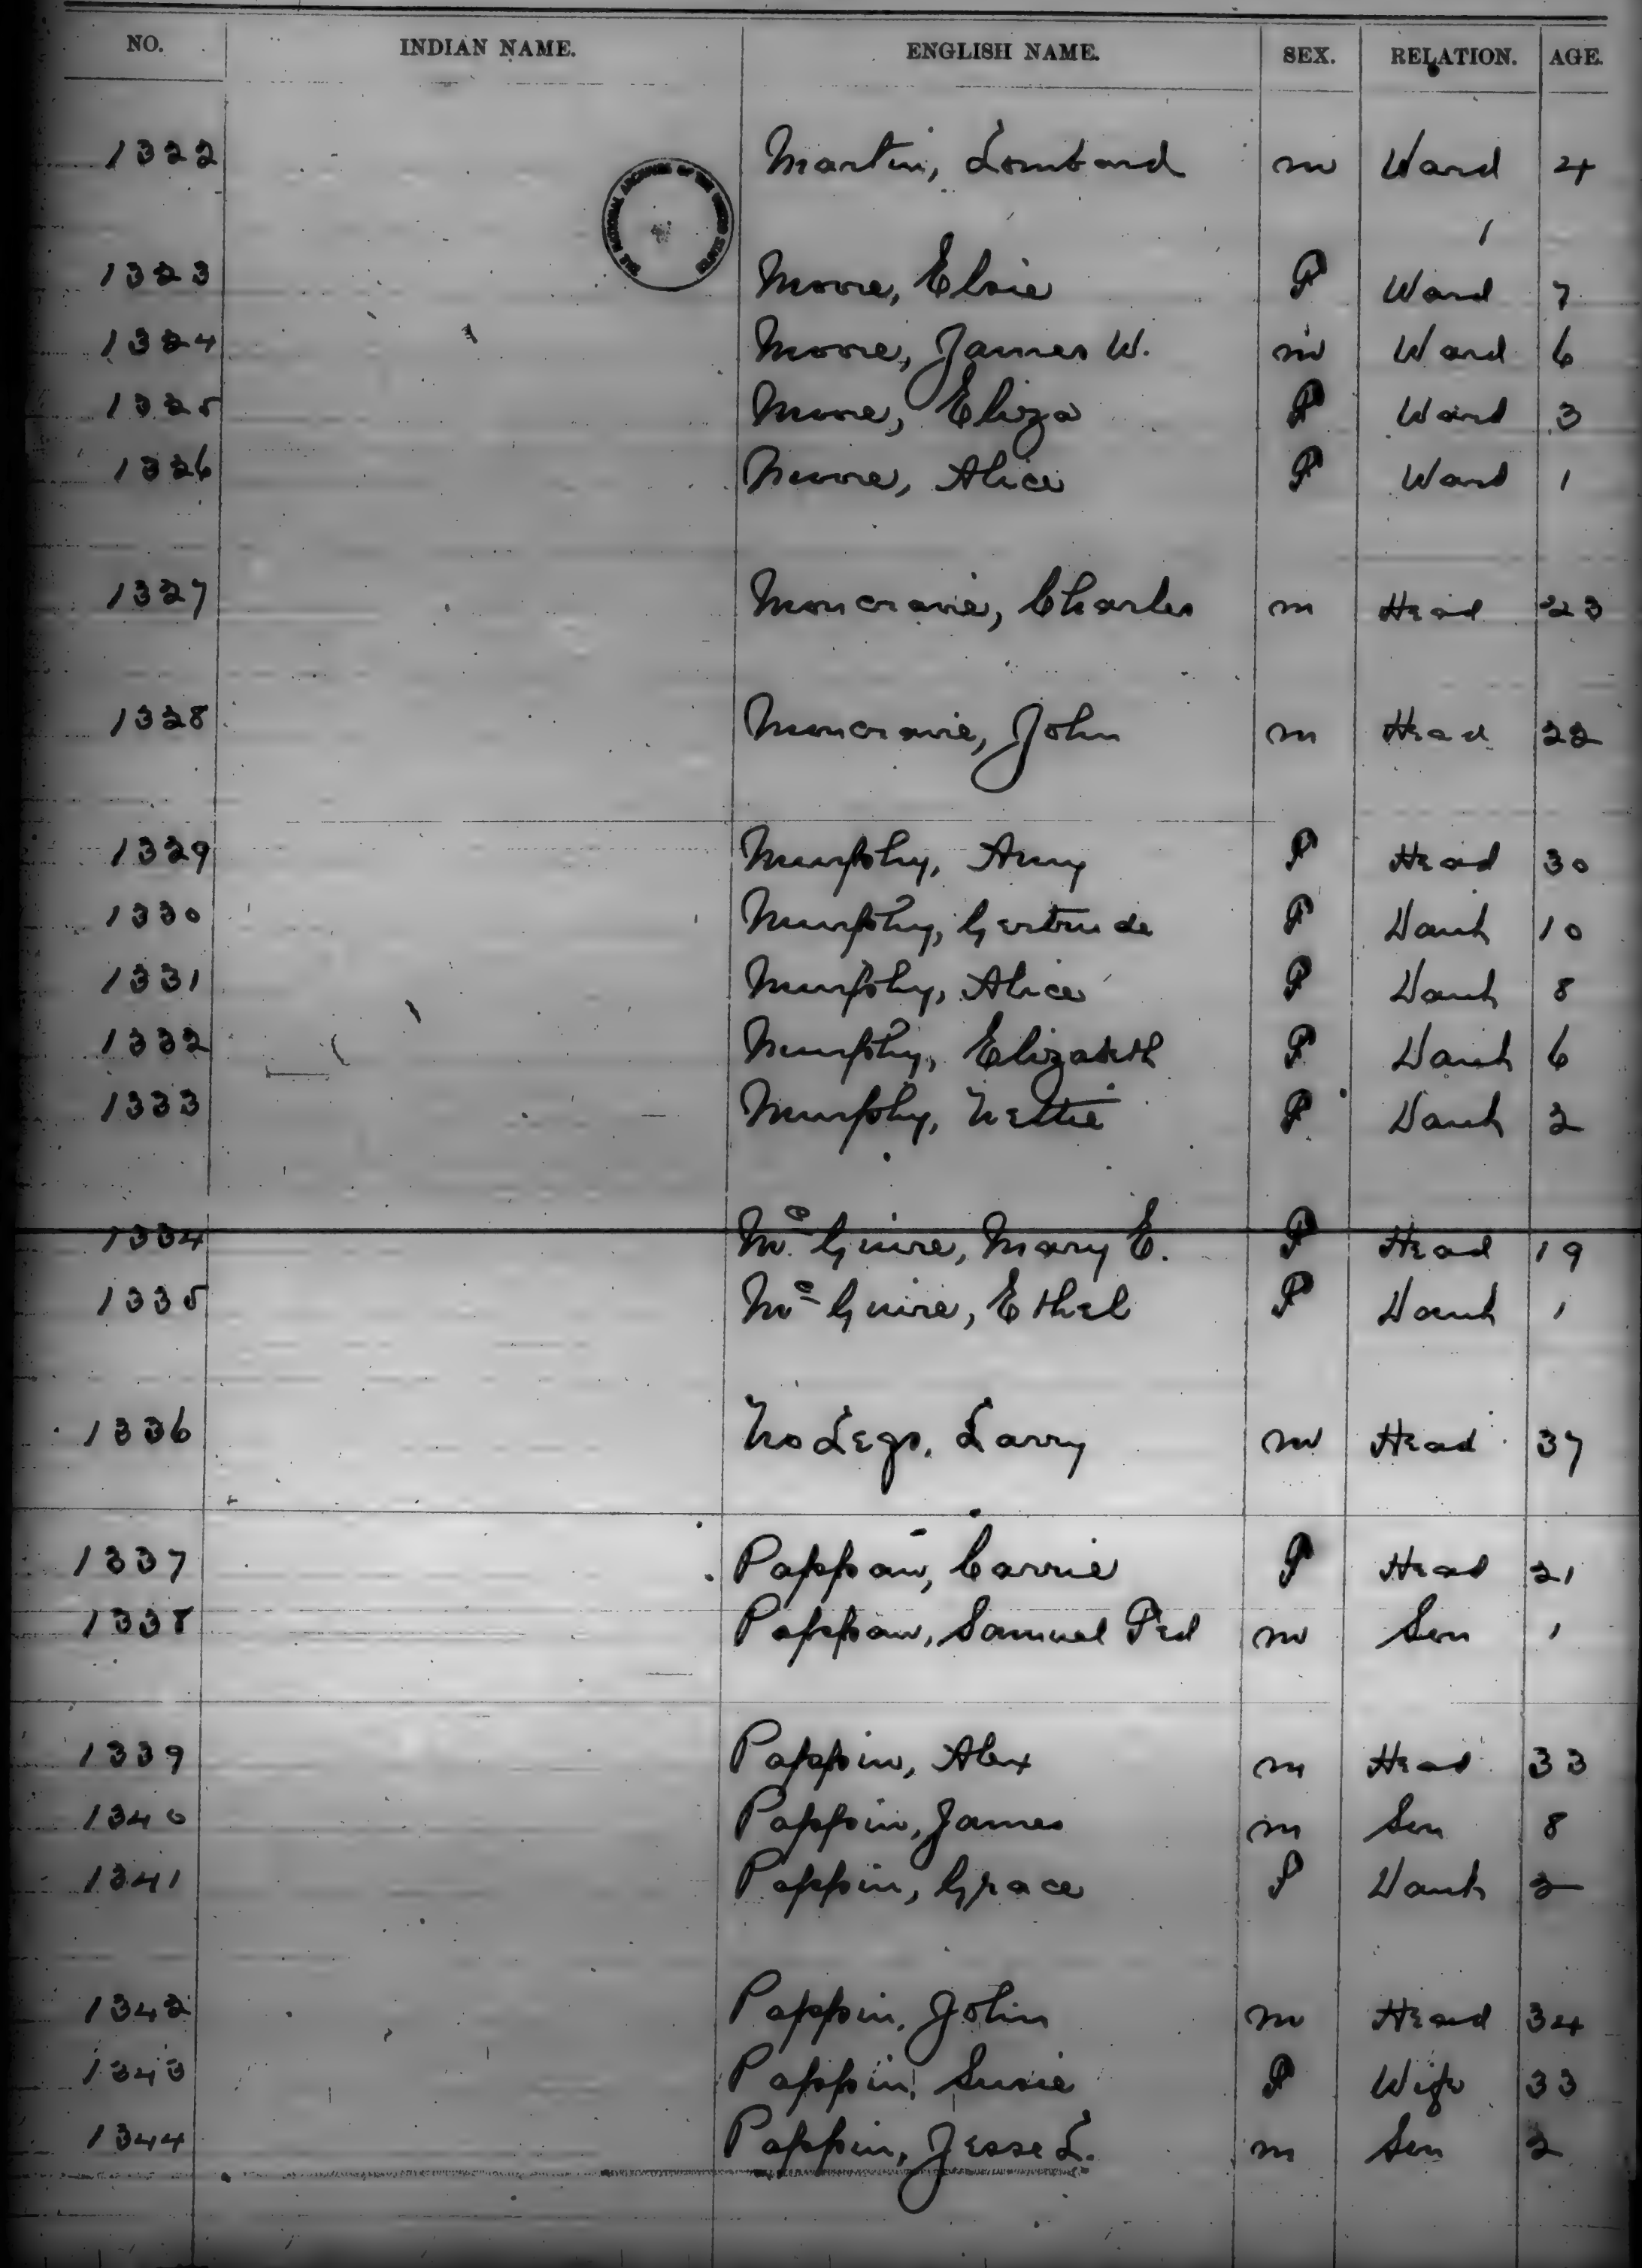 NO. INDIAN NAME. ENGLISH NAME. SEX. RELATION. AGE.
1322 Martin, Lombard m Ward 4
THE NATIONAL ARCHIVES OF THE UNITED STATES
1323 Moore, Elsie F Ward 7
1324 Moore, James W. m Ward 6
1325 Moore, Eliza F Ward 3
1326 Moore, Alice F Ward 1
1327 Moncravie, Charles m Head 23
1328 Moncravie, John m Head 22
1329 Murphy, Amy F Head 30
1330 Murphy, Gertrude F Dauh 10
1331 Murphy, Alice F Dauh 8
1332 Murphy, Elizabeth F Dauh 6
1333 Murphy, Nettie F Dauh 2
1334 Mc Guire, Mary E. F Head 19
1335 Mc Guire, Ethel F Dauh 1
1336 No Legs, Larry m Head 37
1337 Pappan, Carrie F Head 21
1338 Pappan, Samuel Fred m Son 1
1339 Pappin, Alex m Head 33
1340 Pappin, James m Son 8
1341 Pappin, Grace F Dauh 2
1342 Pappin, John m Head 34
1343 Pappin, Susie F Wife 33
1344 Pappin, Jesse L. m Son 2